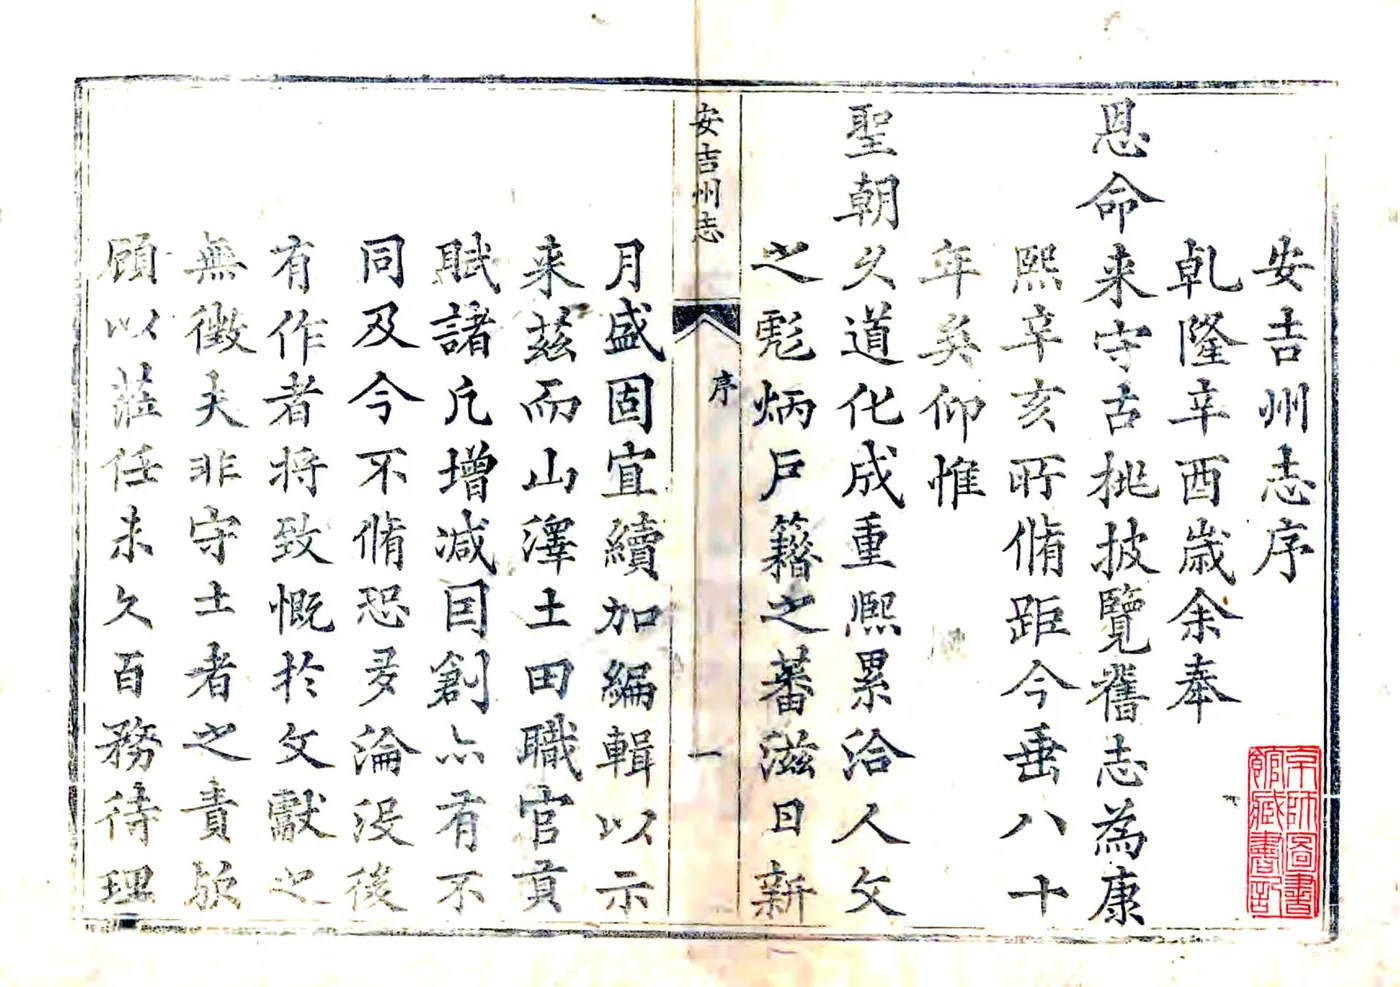 安吉州志序
乹隆辛酉歲余奉
恩命来守古桃披覽舊志為康
熙辛亥所脩距今垂八十
年矣仰惟
聖朝久道化成重熈累洽人文
之彪炳戸籍之蕃滋日新
安吉州志
序
一
月盛固宜續加編輯以示
来茲而山澤土田職官貢
賦諸凢增減因創亦有不
同及今不脩恐多淪没後
有作者将致慨於文獻之
無徴夫非守土者之責歟
顧以莅任未久百務待理
京師圖書
館藏書記